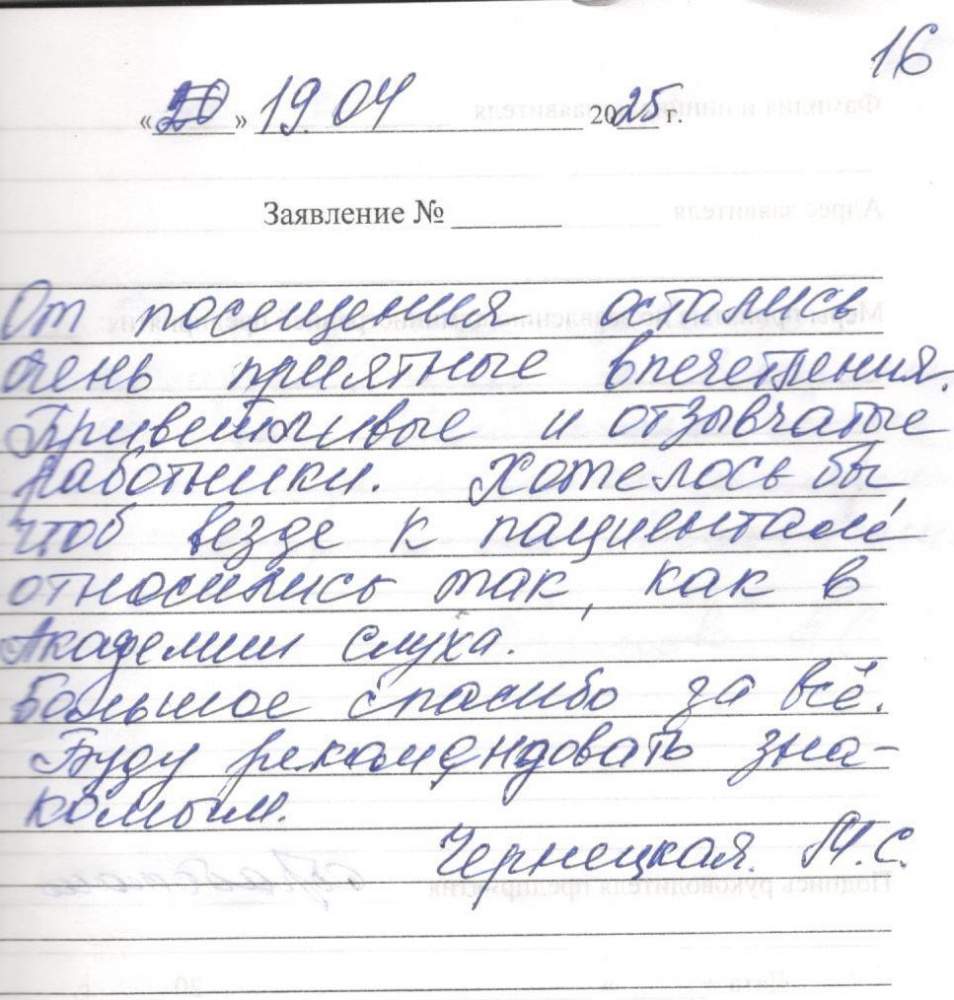 16
«20» 19.04 2025 г.
Заявление № ______
От посещения остались
очень приятные впечетления.
Приветливые и отзывчатые
работники. Хотелось бы,
чтоб везде к пациентам
относились так, как в
Академии слуха.
Большое спасибо за всё.
Буду рекомендовать зна-
комым.
Чернецкая. М.С.